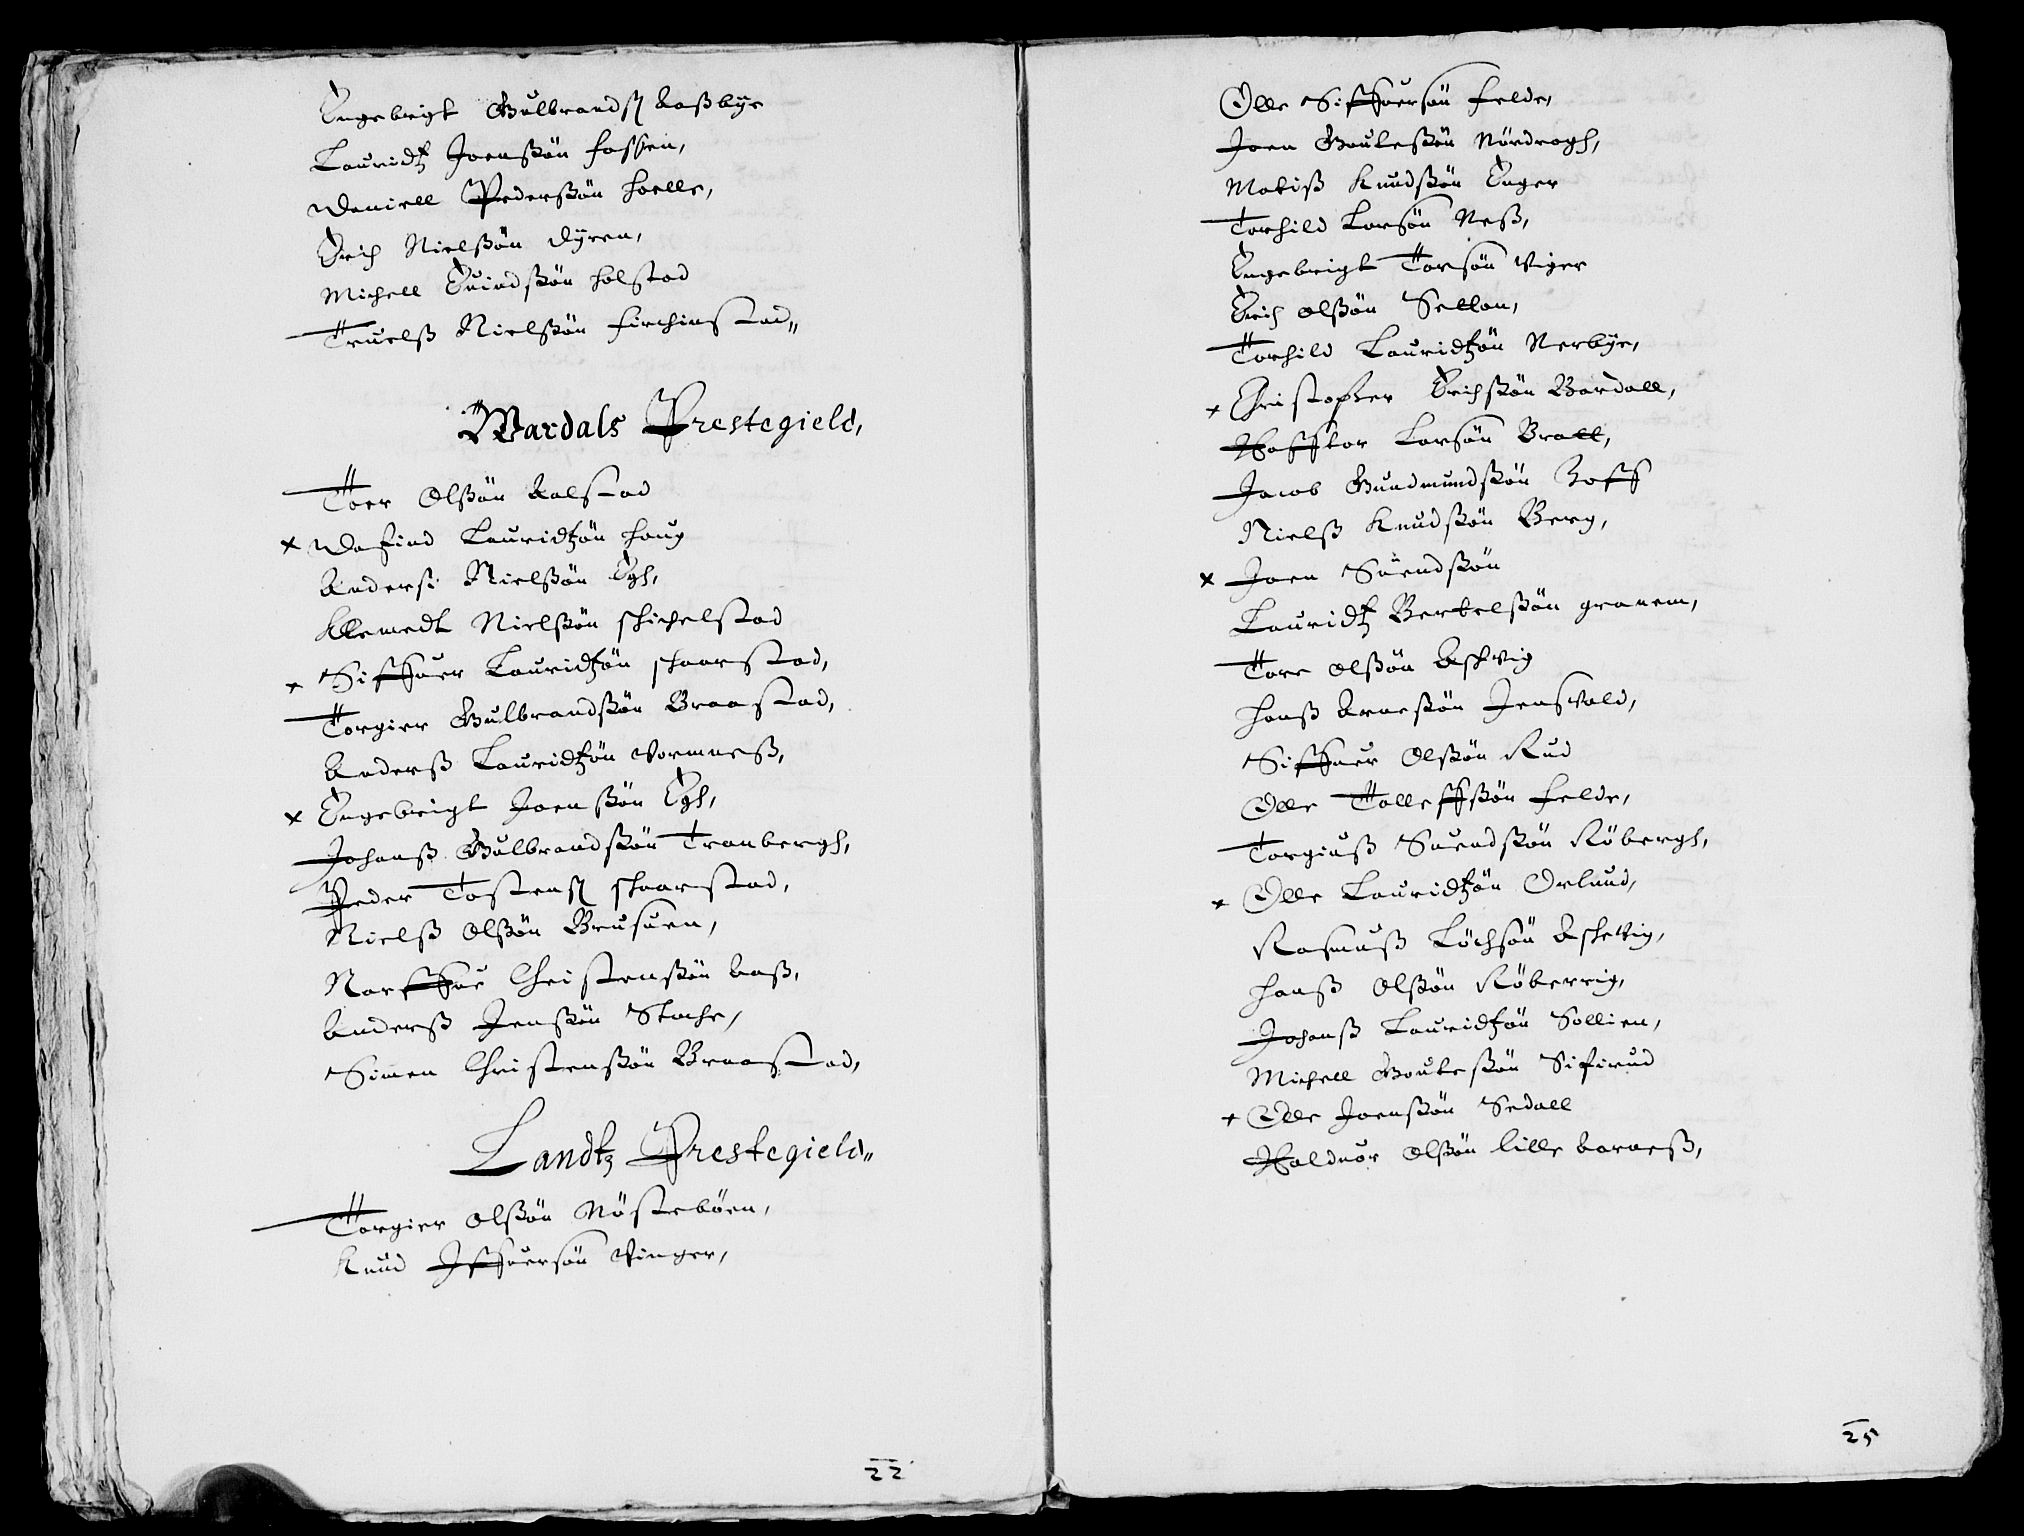 Engebrigt Gulbrands Aaßbye
Lauridtz Joenßön Fossen,
Daniell Pederßön Hoelle,
Erich Nielßön Dyren,
Michell Euindßön Holstad
Truelß Nielßön Firchinstad,,
Wardals Prestegield,
Toer Olßön Aalstad
x Dafind Lauridtzön Houg
Anders Nielßön Egh,
Klemedt Nielßön Schichelstad
x Siffuer Lauridtzön Schaarstad,
Torgier Gulbrandßön Braastad,
Anderß Lauridtzön Vormneß,
x Engebrigt Joenßön Egh,
Johanß Gulbrandßön Tranbergh,
Peder Tostens Schaarstad,
Nielß Olßön Brusuen,
Narffue Christenßön Aaß,
Anderß Jenßön Stache,
Simen Christenßön Braastad,
Landtz Prestegield,,
Torgier Olßön Nösteböen,
Knud Iffuersön Vinger,
22
Olle Siffuersön Felde,
Joen Gouteßön Nördrogh,
Matiß Knudßön Enger
Torkild Larsön Neß,
Engebrigt Torsön Viger
Erich Olßön Settan,
Torkild Lauridtzön Nerbye,
x Christopfer Erichßön Bardall,
Hafftor Larsön Bratt,
Jacob Gundmundßön Hoff
Nielß Knudßön Berg,
x Joen Suendßön
Lauridtz Bertelßön Granem,
Tore Olßön Askvig
Hanß Arneßön Jensvold,
Siffuer Olßön Rud
Olle Tolleffßön Felde,
Torgiuß Suendßön Röbergh,
x Olle Lauridtzön Ørlund,
Rasmuß Löchsön Aschevig,
Hanß Olßön Röberrig,
Johanß Lauridtzön Sollien,
Michell Gouteßön Sifirud
x Olle Joenßön Sedall
Halduor Olßön Lille Aarneß,
25